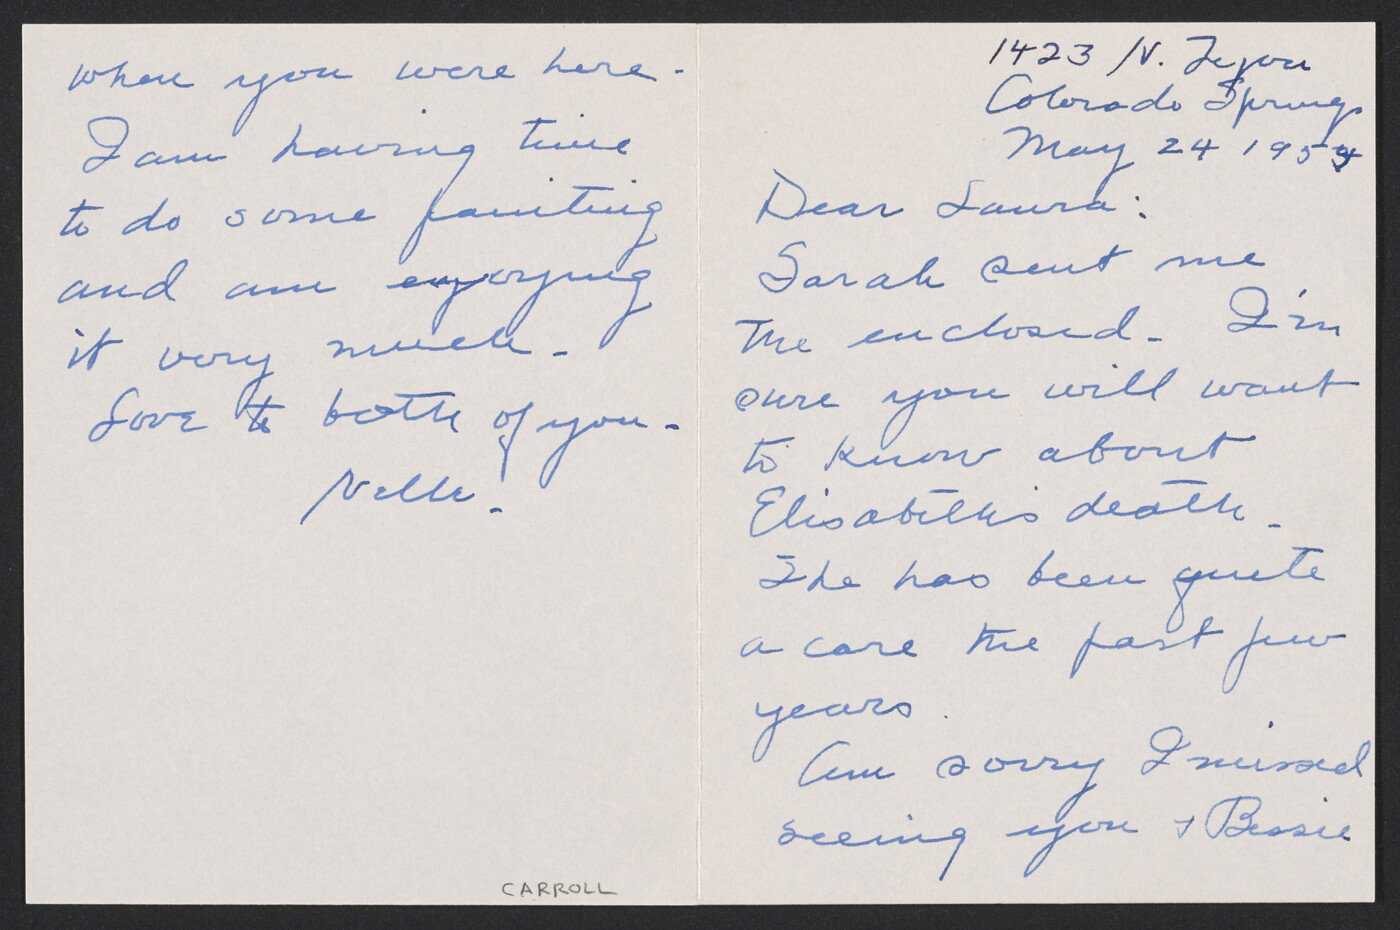 1423 N. Tejon
Colorado Springs
May 24 1954
Dear Laura:
Sarah sent me
the enclosed. I'm
sure you will want
to know about
Elisabeth's death.
She has been quite
a care the past few
years.
Am sorry I missed
seeing you + Bessie
when you were here.
I am having time
to do some painting
and am enjoying
it very much.
Love to both of you.
Nelle.
CARROLL